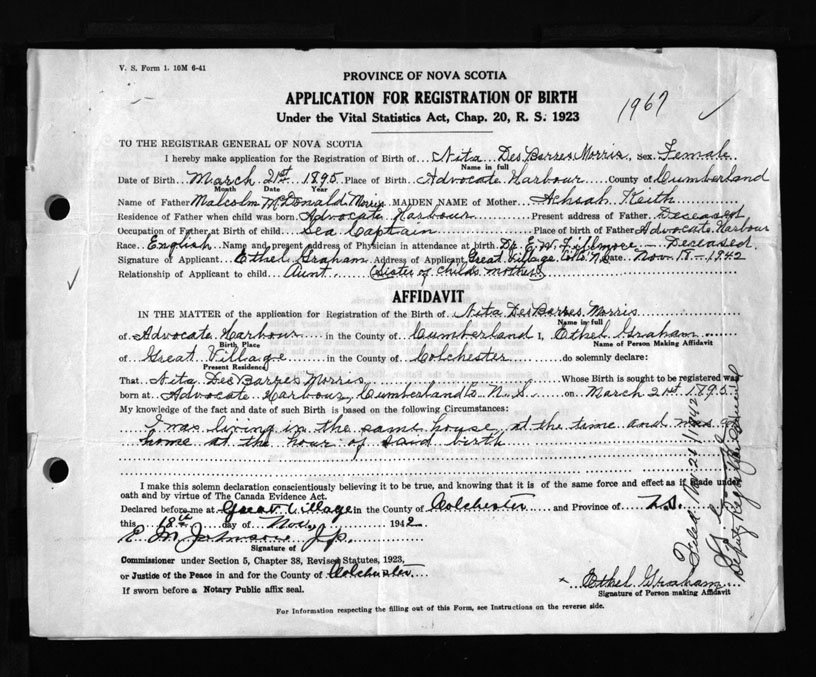 V. S. Form 1. 10M 6-41
PROVINCE OF NOVA SCOTIA
APPLICATION FOR REGISTRATION OF BIRTH
1967
Under the Vital Statistics Act, Chap. 20, R. S. 1923
TO THE REGISTRAR GENERAL OF NOVA SCOTIA
I hereby make application for the Registration of Birth of Nita Des Barres Morris, sex Female
Name in full
Date of Birth March 21st 1895 Place of Birth Advocate Harbour County of Cumberland
Month Day Year
Name of Father Malcolm McDonald Morris MAIDEN NAME of Mother Achsah Keith
Residence of Father when child was born Advocate Harbour Present address of Father Deceased
Occupation of Father at Birth of child Sea Captain Place of birth of Father Advocate Harbour
Race English Name and present address of Physician in attendance at birth Dr. E. W. Fillmore - Deceased.
Signature of Applicant Ethel Graham Address of Applicant Great Village Col. Co. N.S. Date Nov. 18 - 1942
Relationship of Applicant to child Aunt. (Sister of childs mother)
AFFIDAVIT
IN THE MATTER of the application for Registration of the Birth of Nita Des Barres Morris
Name in full
of Advocate Harbour in the County of Cumberland I, Ethel Graham
Birth Place Name of Person Making Affidavit
of Great Village in the County of Colchester do solemnly declare:
Present Residence
That Nita Des Barres Morris Whose Birth is sought to be registered was
born at Advocate Harbour, Cumberland Co N. S. on March 21st 1895
My knowledge of the fact and date of such Birth is based on the following Circumstances:
I was living in the same house at the time and was at
home at the hour of said birth
I make this solemn declaration conscientiously believing it to be true, and knowing that it is of the same force and effect as if made under
oath and by virtue of The Canada Evidence Act.
Declared before me at Great Village in the County of Colchester and Province of N.S.
this 18th day of Nov. 1942
E M Johnson J.p.
Signature of
Commissioner under Section 5, Chapter 38, Revised Statutes, 1923,
or Justice of the Peace in and for the County of Colchester
If sworn before a Notary Public affix seal.
Ethel Graham
Signature of Person making Affidavit
For Information respecting the filling out of this Form, see Instructions on the reverse side.
Filed Nov. 26 / 1942
Deputy Registrar General